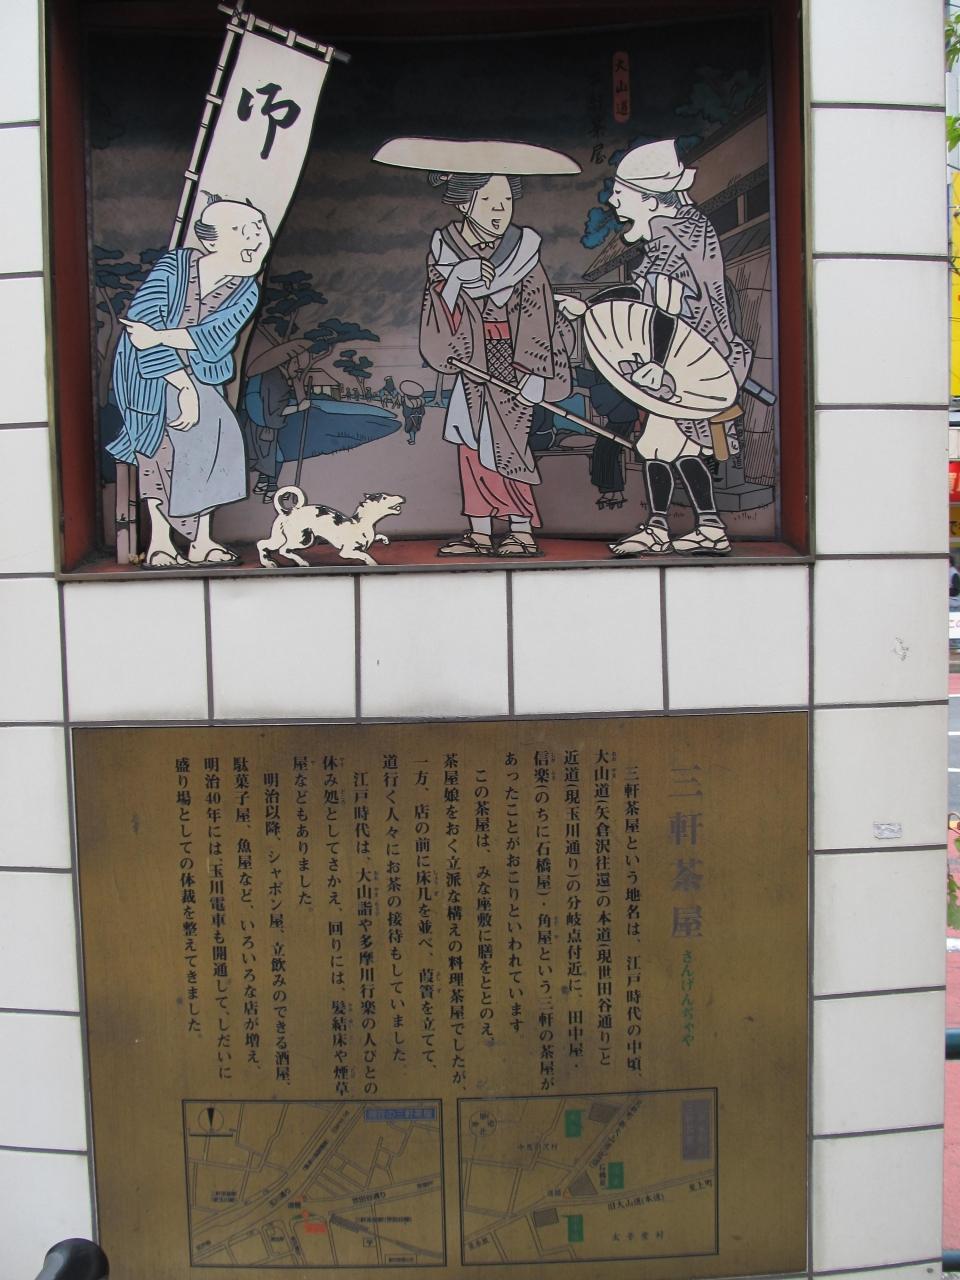 師
大山道
三軒茶屋
さんげんぢゃや
三軒茶屋という地名は、江戸時代の中頃、
大山道(矢倉沢往還)の本道(現世田谷通り)と
近道(現玉川通り)の分岐点付近に、田中屋・
信楽(のちに石橋屋)・角屋という三軒の茶屋が
あったことがおこりといわれています。
この茶屋は、みな座敷に膳をととのえ、
茶屋娘をおく立派な構えの料理茶屋でしたが、
一方、店の前に床几を並べ、葭簀を立てて、
道行く人々にお茶の接待もしていました。
江戸時代は、大山詣や多摩川行楽の人びとの
休み処としてさかえ、回りには、髪結床や煙草
屋などもありました。
明治以降、シャボン屋、立飲みのできる酒屋、
駄菓子屋、魚屋など、いろいろな店が増え、
明治40年には、玉川電車も開通して、しだいに
盛り場としての体裁を整えてきました。
現在の三軒茶屋
世田谷通り
道標
中馬引沢村
石橋屋
道標
旧大山道(本道)
至上町
太子堂村